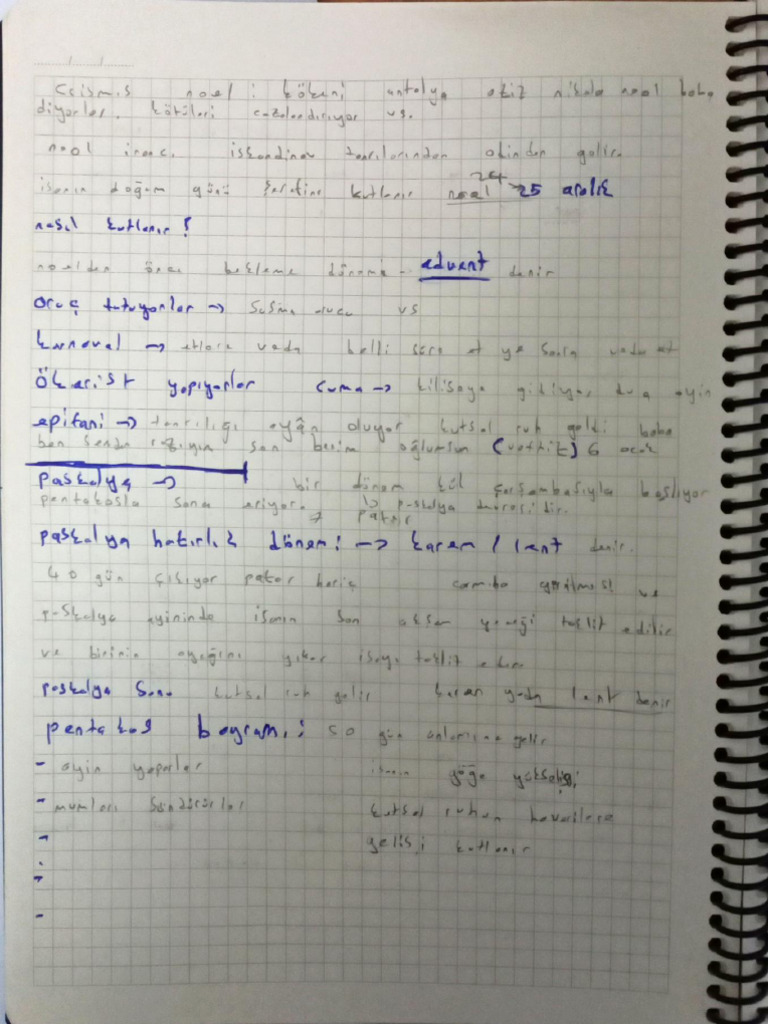 noel : kökeni antalya aziz nikola noel baba
diyorlar. kötüleri cezalandırıyor vs.
noel inancı iskandinav tanrılarından odinden gelir.
isanın doğum günü şerefine kutlanır noel 24 → 25 aralık
nasıl kutlanır?
noelden önce bekleme dönemi - advent denir
oruç tutuyorlar → susma orucu vs
karnaval → etlere veda belli süre et ye sonra veda et
ökarist yapıyorlar cuma → kiliseye gidiyor, dua ayin
epifani → tanrılığı ayân oluyor kutsal ruh geldi baba
ben senden razıyım sen benim oğlumsun (vaftiz) 6 ocak
paskalya → bir dönem kül çarşambasıyla başlıyor
pentakosla sona eriyor. → paskalya devresidir.
→ pazar
paskalya hazırlık dönemi → karem / lent denir.
40 gün çıkıyor pazar hariç ve
paskalya ayininde isanın son akşam yemeği taklit edilir
ve birinin ayağını yıkar isayı taklit eder
paskalya sonu kutsal ruh gelir karem yada lent denir
pentakos bayramı: 50 gün anlamına gelir
- ayin yaparlar isanın göğe yükselişi
- mumları söndürürler kutsal ruhun havarilere
- gelişi kutlanır
-
-